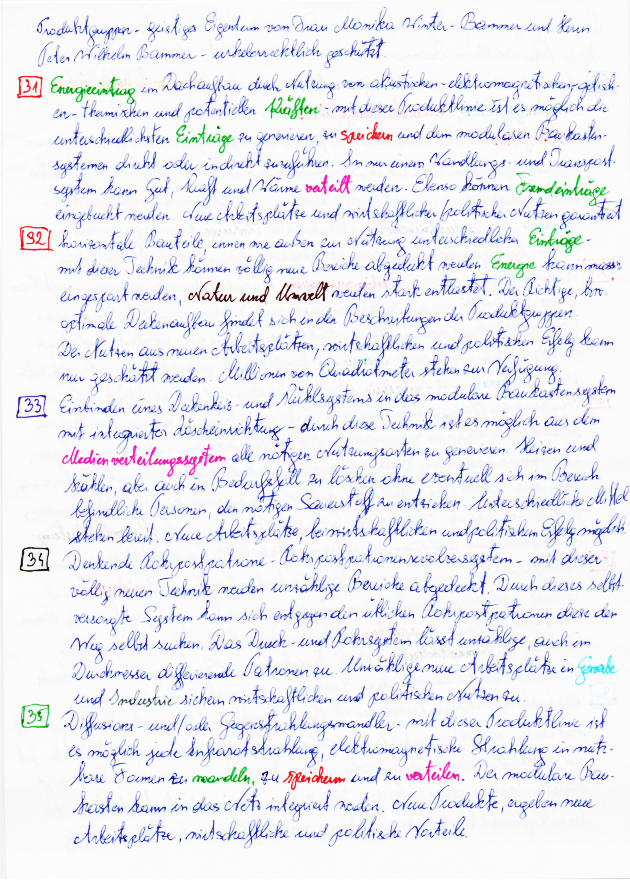 Produktgruppen - geistiges Eigentum von Frau Monika Winter - Bammer und Herrn
Peter Wilhelm Bammer - urheberrechtlich geschützt.
31 Energieeintrag im Dachaufbau durch Nutzung von akustischen - elektromagnetischen - optisch-
en - thermischen und potentiellen Kräften - mit dieser Produktlinie ist es möglich die
unterschiedlichsten Einträge zu generieren, zu speichern und dem modularen Baukasten-
systemen direkt oder indirekt zuzuführen. In nur einem Wandlungs- und Transport-
system kann Gut, Kraft und Wärme verteilt werden. Ebenso können Fremdeinträge
eingebucht werden. Neue Arbeitsplätze und wirtschaftlicher politischer Nutzen garantiert
32 horizontale Bauteile, innen wie außen zur Nutzung unterschiedlicher Einträge -
mit dieser Technik können völlig neue Bereiche abgedeckt werden. Energie kann
eingespart werden, Natur und Umwelt werden stark entlastet. Der Richtige, bzw.
optimale Deckenaufbau findet sich in den Beschreibungen der Produktgruppen.
Der Nutzen aus neuen Arbeitsplätzen, wirtschaftlichen und politischen Erfolg kann
nur geschätzt werden. Millionen von Quadratmeter stehen zur Verfügung.
33 Einbinden eines Deckenheiz- und Kühlsystems in das modulare Baukastensystem
mit integrierter Löscheinrichtung - durch diese Technik ist es möglich aus dem
Medienverteilungssystem alle nötigen Nutzungsarten zu generieren. Heizen und
kühlen, aber auch im Bedarfsfall zu löschen ohne eventuell sich im Bereich
befindliche Personen, den nötigen Sauerstoff zu entziehen. Unterschiedliche Mittel
stehen bereit. Neue Arbeitsplätze, bei wirtschaftlichen und politischen Erfolg möglich.
34 Denkende Rohrpostpatrone - Rohrpostpatronenrevolversystem - mit dieser
völlig neuen Technik werden unzählige Bereiche abgedeckt. Durch dieses selbst
versorgte System kann sich entgegen den üblichen Rohrpostpatronen diese den
Weg selbst suchen. Das Druck- und Rohrsystem lässt unzählige, auch im
Durchmesser differierende Patronen zu. Unzählige neue Arbeitsplätze in Gewerbe
und Industrie sichern wirtschaftlichen und politischen Nutzen zu.
35 Diffusions- und/oder Gegenstrahlungswandler - mit dieser Produktlinie ist
es möglich jede Infrarotstrahlung, elektromagnetische Strahlung in nutz-
bare Formen zu wandeln, zu speichern und zu verteilen. Der modulare Bau-
kasten kann in das Netz integriert werden. Neue Produkte, ergeben neue
Arbeitsplätze, wirtschaftliche und politische Vorteile.